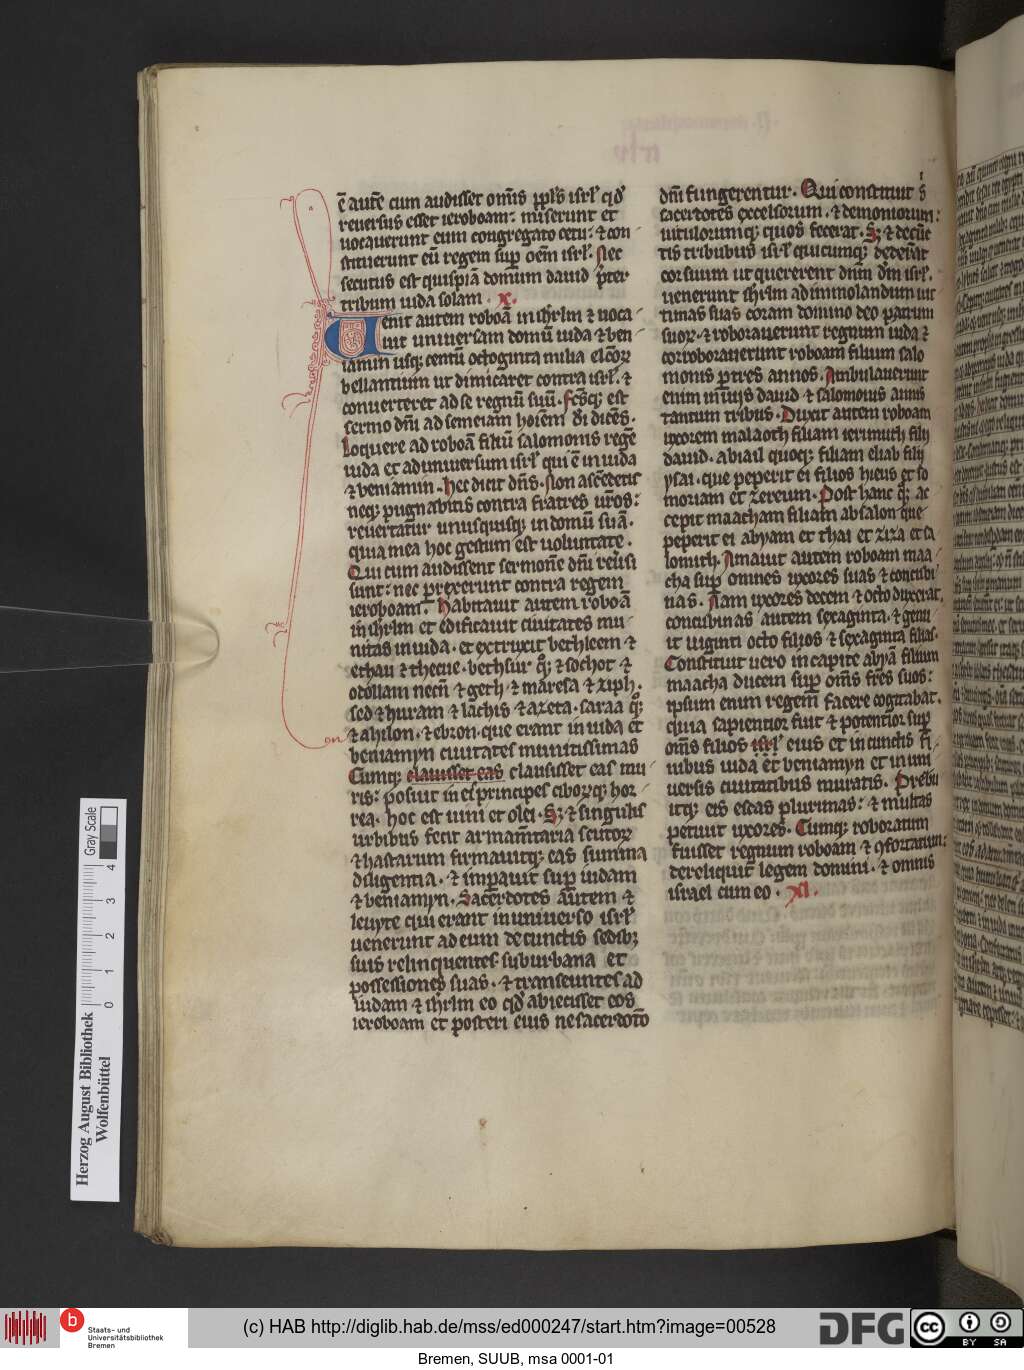 ē autē cum audisset om̄is ppl̄s isrl̄ qd̄
reuersus esset ieroboam: miserunt et
uocauerunt eum congregato cetu: ⁊ con
stituerunt eū regem sup oēm isrl̄. Nec
secutus est quispiā domum dauid p̄ter
tribum iuda solam. x.
Uenit autem roboā in ihrl̄m ⁊ uoca
uit uniuersam domū iuda ⁊ ben
iamin usq; centū octoginta milia elc̄or
bellantium ut dimicaret contra isrl̄. ⁊
conuerteret ad se regnū suū. Fc̄sq; est
sermo dn̄i ad semeiam hoiēm di dicēs.
Loquere ad roboā filiū salomonis regē
iuda et ad uniuersum isrl̄ qui ē in iuda
⁊ beniamin. Hec dicit dn̄s. Non ascēdetis
neq; pugnabitis contra fratres ur̄os:
reuertatur unusquisq; in domū suā.
quia mea hoc gestum est uoluntate.
Qui cum audissent sermonē dn̄i reu̓si
sunt: nec prexerunt contra regem
ieroboam. Habitauit autem roboā
in ihrl̄m et edificauit ciuitates mu
nitas in iuda. et extruxit bethleem ⁊
ethau ⁊ thecue. bethsur q; ⁊ sochot ⁊
odollam necn̄ ⁊ geth. ⁊ maresa ⁊ ziph.
sed ⁊ huram ⁊ lachis ⁊ azeta. saraa q;
⁊ ahilon. ⁊ ebron. que erant in iuda et
beniamyn ciuitates munitissimas
Cumq; clauisset eas clausisset eas mu
ris: posuit in eis principes ciborq; hor
rea. hoc est uini et olei. S; ⁊ singulis
urbibus fecit armam̄taria scutor
⁊ hastarum firmauitq; eas summa
diligentia. ⁊ impauit sup iudam
⁊ beniamyn. Sacerdotes autem ⁊
leuyte qui erant in uniuerso isrl̄
uenerunt ad eum de cunctis sedib;
suis relinquentes suburbana et
possessiones suas. ⁊ transeuntes ad
iudam ⁊ ihrl̄m eo qd̄ abiecisset eos
ieroboam et posteri eius ne sacerdotō
dn̄i fungerentur. Qui constituit s̄
sacerdotes excelsorum. ⁊ demoniorum:
uitulorumq; quos fecerat. S; ⁊ de cūc
tis tribubus isrl̄ quicumq; dederāt
cor suum ut quererent dn̄m dm̄ isrl̄.
uenerunt ihrl̄m ad immolandum uic
timas suas coram domino deo patrum
suor. ⁊ roborauerunt regnum iuda ⁊
corroborauerunt roboam filium salo
monis p tres annos. Ambulauerunt
enim in uiis dauid ⁊ salomonis annis
tantum tribus. Duxit autem roboam
uxorem malaoth filiam ierimuth filij
dauid. abiail quoq; filiam eliab filij
ysai. que peperit ei filios hieus et so
moriam et zereum. Post hanc q; ac
cepit maacham filiam absalon que
peperit ei abyam et thai et ziza et sa
lomith. Amauit autem roboam maa
cha sup omnes uxores suas ⁊ concubi
nas. Nam uxores decem ⁊ octo duxerat.
concubinas autem sexaginta. ⁊ genu
it uiginti octo filios ⁊ sexaginta filias.
Constituit uero in capite abyā filium
maacha ducem sup om̄s fr̄es suos:
ipsum enim regem facere cogitabat.
quia sapientior fuit ⁊ potentior sup
om̄s filios isrl̄ eius et in cunctis fi
nibus iuda et beniamyn et in uni
uersis ciuitatibus muratis. Prebu
itq; eis escas plurimas: ⁊ multas
petiuit uxores. Cumq; roboratum
fuisset regnum roboam ⁊ ꝯfortatum:
dereliquit legem domini. ⁊ omnis
israel cum eo. xi.
Herzog August Bibliothek
Wolfenbüttel
Gray Scale
0 1 2 3 4
b Staats- und
Universitätsbibliothek
Bremen
(c) HAB http://diglib.hab.de/mss/ed000247/start.htm?image=00528
DFG
cc BY SA
Bremen, SUUB, msa 0001-01